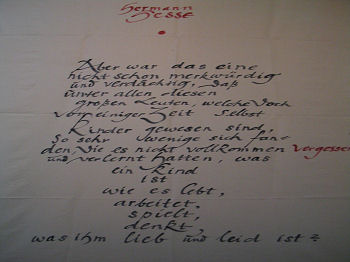 Hermann
Hesse
Aber war das eine
nicht schon merkwürdig
und verdächtig, daß
unter allen diesen
großen Leuten, welche doch
vor einiger Zeit selbst
Kinder gewesen sind,
so sehr wenige sich fan-
den, die es nicht vollkommen vergessen
und verlernt hatten, was
ein Kind
ist
wie es lebt,
arbeitet,
spielt,
denkt,
was ihm lieb und leid ist?